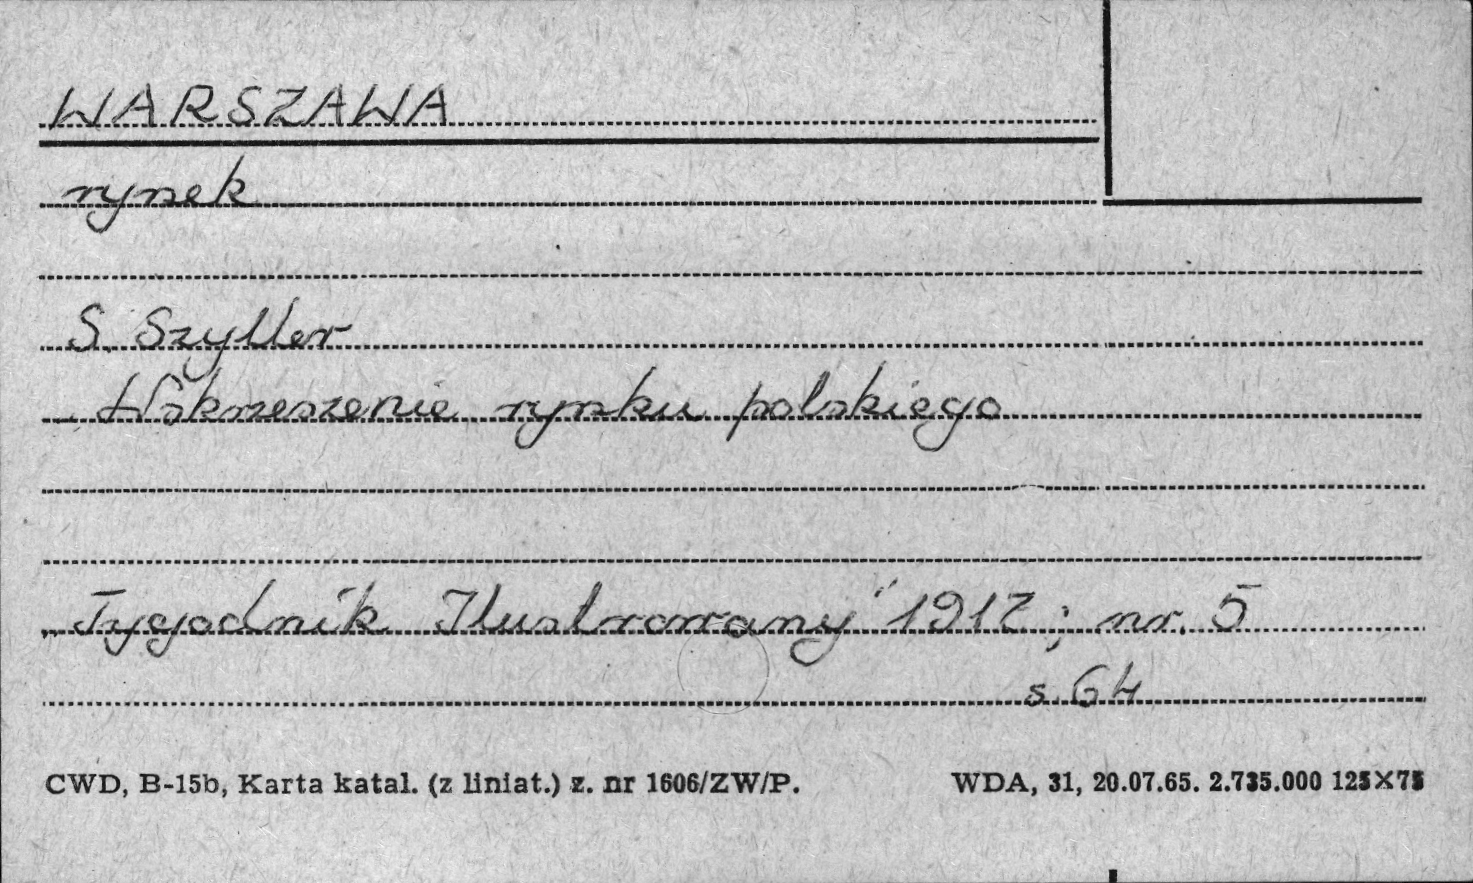 WARSZAWA
rynek
S. Szyller
Wskrzeszenie rynku polskiego
"Tygodnik Ilustrowany" 1917; nr. 5
s. 64
CWD, B-15b, Karta katal. (z liniat.) z. nr 1606/ZW/P. WDA, 31, 20.07.65. 2.735.000 125×75